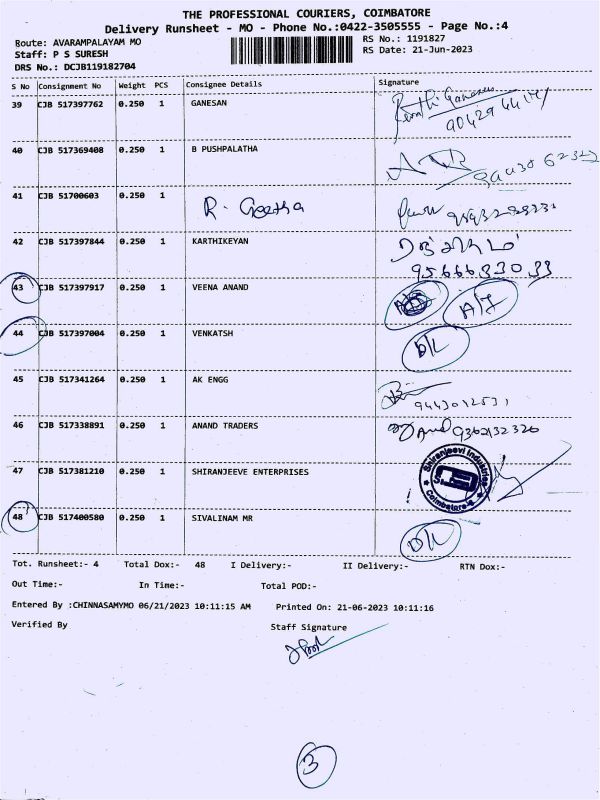 THE PROFESSIONAL COURIERS, COIMBATORE
Delivery Runsheet - MO - Phone No.:0422-3505555 - Page No.:4
Route: AVARAMPALAYAM MO
RS No.: 1191827
Staff: P S SURESH
RS Date: 21-Jun-2023
DRS No.: DCJB119182704
S No Consignment No Weight PCS Consignee Details Signature
39 CJB 517397762 0.250 1 GANESAN
40 CJB 517369408 0.250 1 B PUSHPALATHA
41 CJB 51700603 0.250 1 R. Geetha
42 CJB 517397844 0.250 1 KARTHIKEYAN
9566633033
43 CJB 517397917 0.250 1 VEENA ANAND
44 CJB 517397004 0.250 1 VENKATSH
D/L
45 CJB 517341264 0.250 1 AK ENGG
9443012531
46 CJB 517338891 0.250 1 ANAND TRADERS
9362132320
47 CJB 517381210 0.250 1 SHIRANJEEVE ENTERPRISES
Shiranjeevi Industries
Coimbatore
48 CJB 517400580 0.250 1 SIVALINAM MR
D/L
Tot. Runsheet:- 4 Total Dox:- 48 I Delivery:- II Delivery:- RTN Dox:-
Out Time:- In Time:- Total POD:-
Entered By :CHINNASAMYMO 06/21/2023 10:11:15 AM Printed On: 21-06-2023 10:11:16
Verified By Staff Signature
3